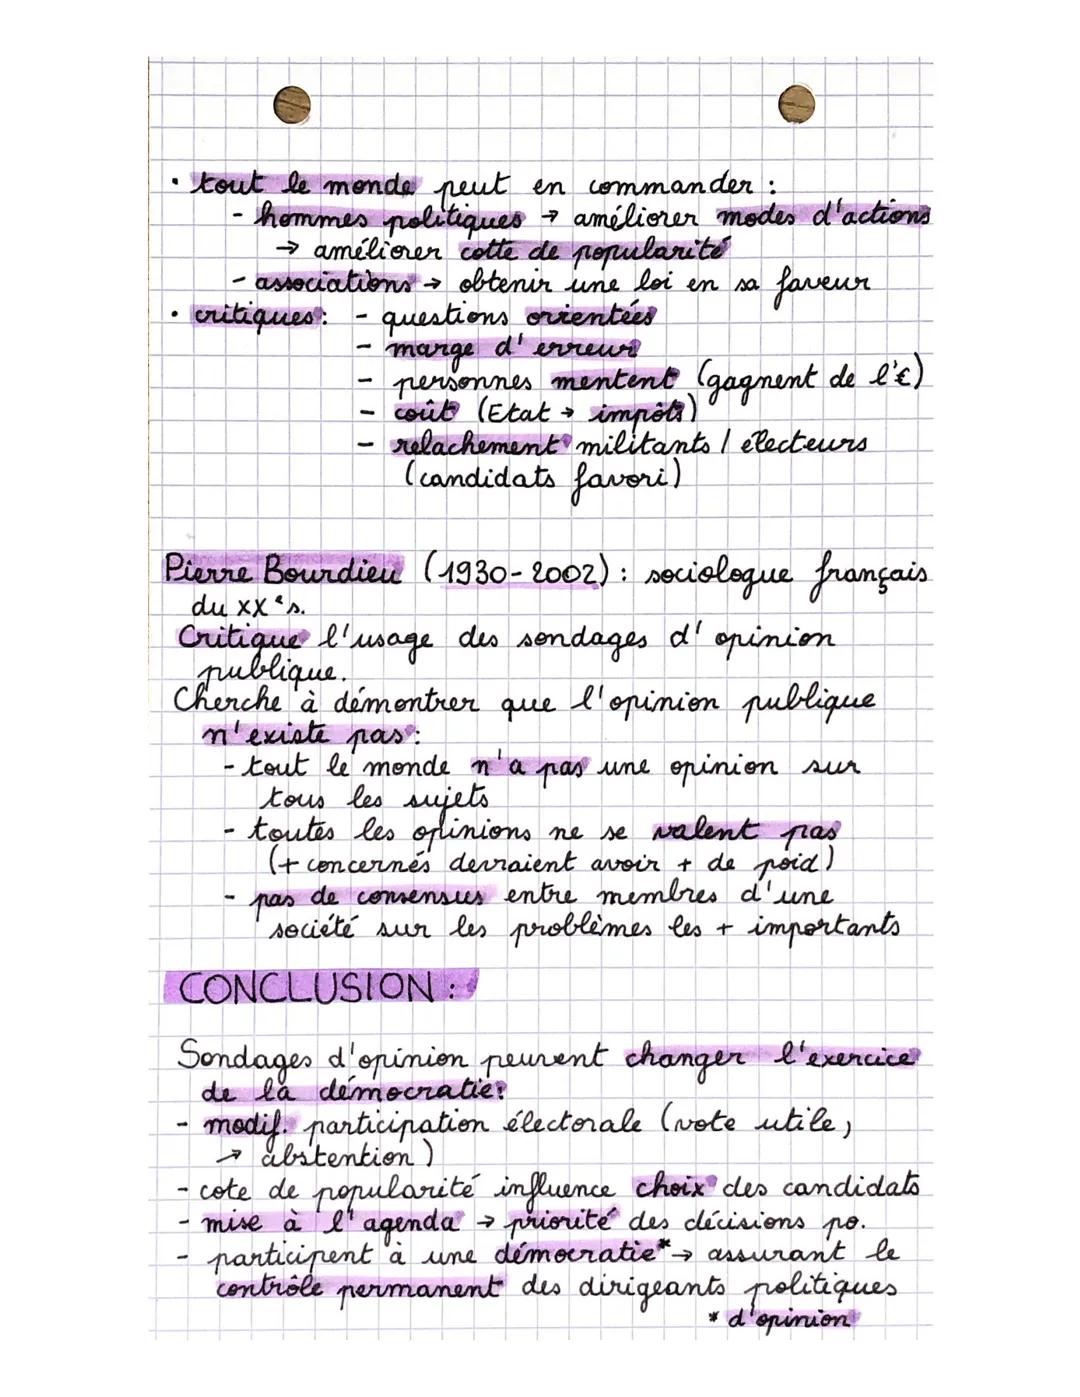 • tout le monde peut en commander :
- hommes politiques → améliorer modes d'actions
→ améliorer cotte de popularité
- associations → obtenir une loi en sa faveur
• critiques : - questions orientées
- marge d'erreur
- personnes mentent (gagnent de l'€)
- coût (Etat → impôts)
- relachement militants / électeurs
(candidats favori)
Pierre Bourdieu (1930-2002) : sociologue français
du XXe s.
Critique l'usage des sondages d'opinion
publique.
Cherche à démontrer que l'opinion publique
n'existe pas :
- tout le monde n'a pas une opinion sur
tous les sujets
- toutes les opinions ne se valent pas
(+ concernés devraient avoir + de poid)
- pas de consensus entre membres d'une
société sur les problèmes les + importants
CONCLUSION :
Sondages d'opinion peuvent changer l'exercice
de la démocratie :
- modif. participation électorale (vote utile,
→ abstention)
- cote de popularité influence choix des candidats
- mise à l'agenda → priorité des décisions po.
- participent à une démocratie* → assurant le
contrôle permanent des dirigeants politiques
* d'opinion